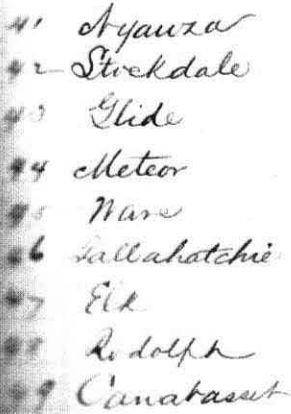 41 Nyawza
42 Stockdale
43 Glide
44 Meteor
45 Wave
46 Tallahatchie
47 Elk
48 Rodolph
49 Canabasset